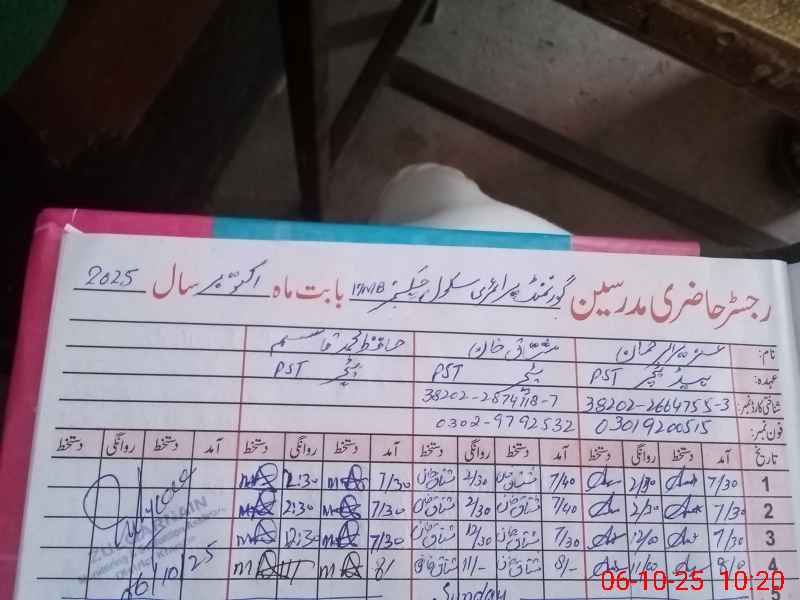 رجسٹر حاضری مدرسین گورنمنٹ پرائمری سکول 17MB بابت ماہ اکتوبر سال 2025
نام: عزیز الرحمان مشتاق خان حافظ محمد قاسم
عہدہ: ہیڈ ٹیچر PST ٹیچر PST ٹیچر PST
شناختی کارڈ نمبر: 38202-2664755-3 38202-2874118-7
فون نمبر: 03019200515 0302-9792532
تاریخ آمد دستخط روانگی دستخط آمد دستخط روانگی دستخط آمد دستخط روانگی دستخط آمد دستخط روانگی دستخط
1 7/30 2/30 7/40 مشتاق خان 2/30 مشتاق خان 7/30 2:30
2 7/30 2/30 7/40 مشتاق خان 2/30 مشتاق خان 7/30 2:30
3 7/30 12/00 7/30 مشتاق خان 12/30 مشتاق خان 7/30 12:30
4 8/0 11/00 8/- مشتاق خان 11/- مشتاق خان 8/
5 Sunday
ZULQARNAIN
06/10/25
06-10-25 10:20